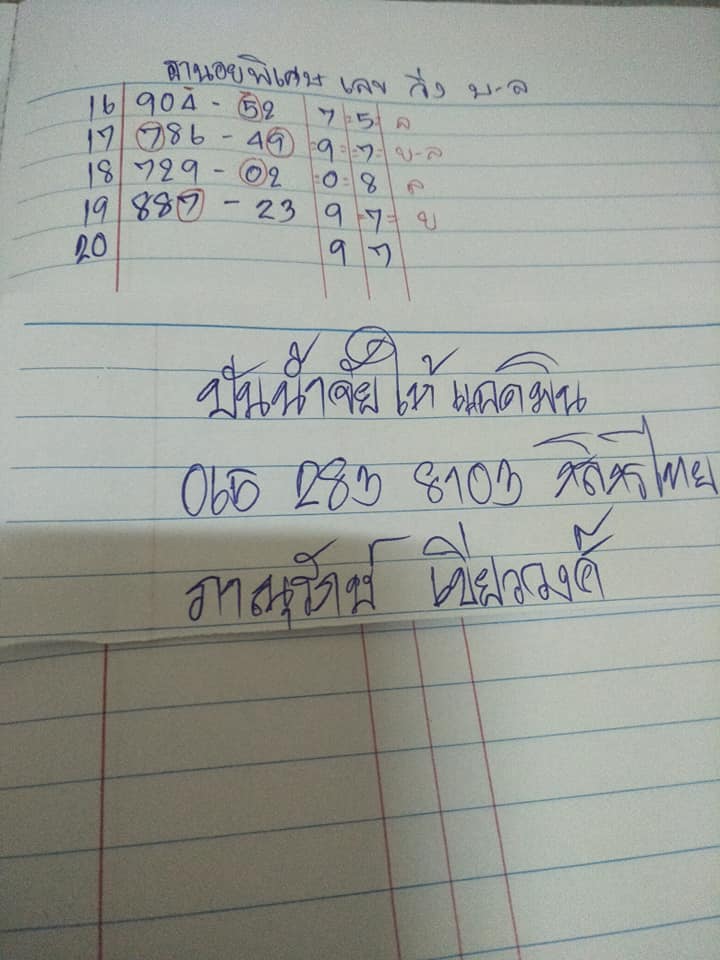 ฮานอยพิเศษ เลข วิ่ง บ-ล
16 904 - 52 7 5 ล
17 786 - 49 9 7 บ-ล
18 729 - 02 0 8 ล
19 887 - 23 9 7 บ
20 9 7
ปันน้ำใจให้แอดมิน
065 283 8103 กสิกรไทย
ภาณุรักษ์ เขียววงค์